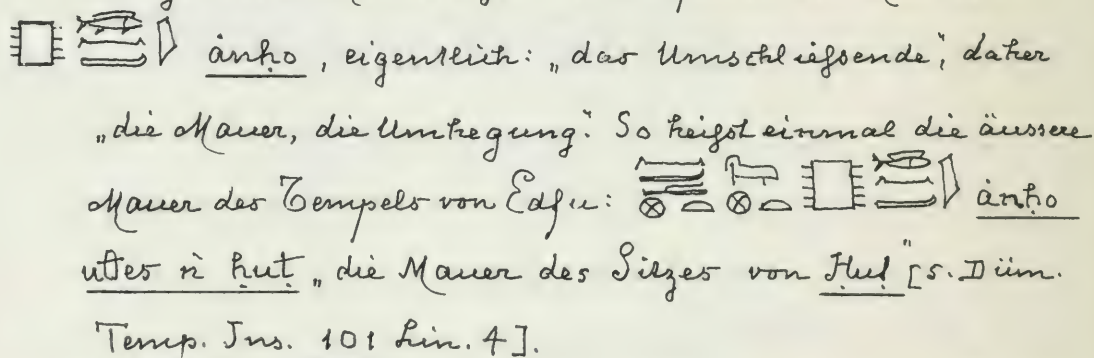 ȧnḥo, eigentlich: „das Umschließende“, daher
„die Mauer, die Umhegung“. So heißt einmal die äussere
Mauer des Tempels von Edfu: ȧnḥo
utes n ḥut „die Mauer des Sitzes von Ḥut“ [s. Düm.
Temp. Ins. 101 Lin. 4].